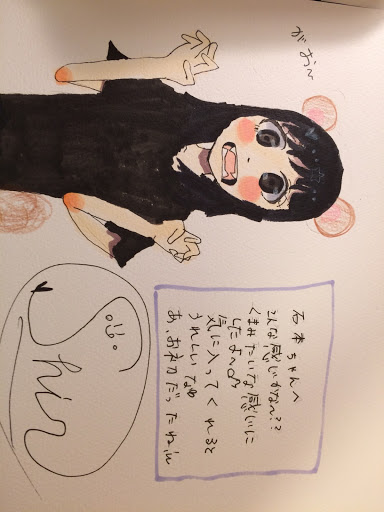 がおー
ちゃんへ
こんな感じかな〜??
くまみたいな感じに
したよ〜
気に入ってくれると
うれしいなぁ
あ、お初だったね
Shin